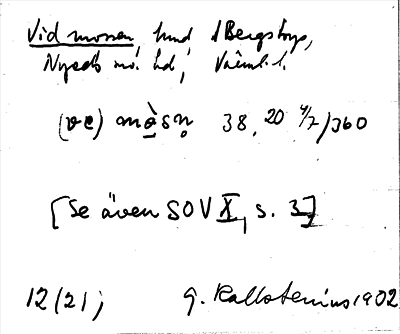 Vid mossen, hmd i Bergstorp,
Nyeds sn. o. hd, Värml. l.
(ve) mòsn̥ 38, 20 4/7/360
[Se även SOV X, s. 3]
12(21); G. Kallstenius 1902